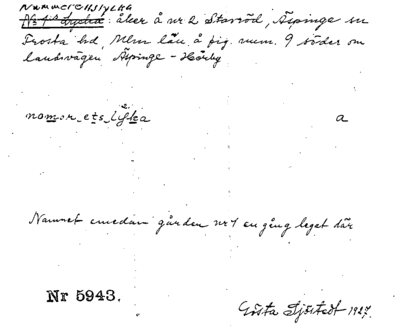 Nummerettstycka
åker å nr 2 Starröd, Äspinge sn
Frosta hd, Mlm län. å fig. num. 9 söder om
landsvägen Äspinge - Hörby
a
Namnet emedan gården nr 1 en gång leget där
Nr 5943.
Gösta Sjöstedt 1927.